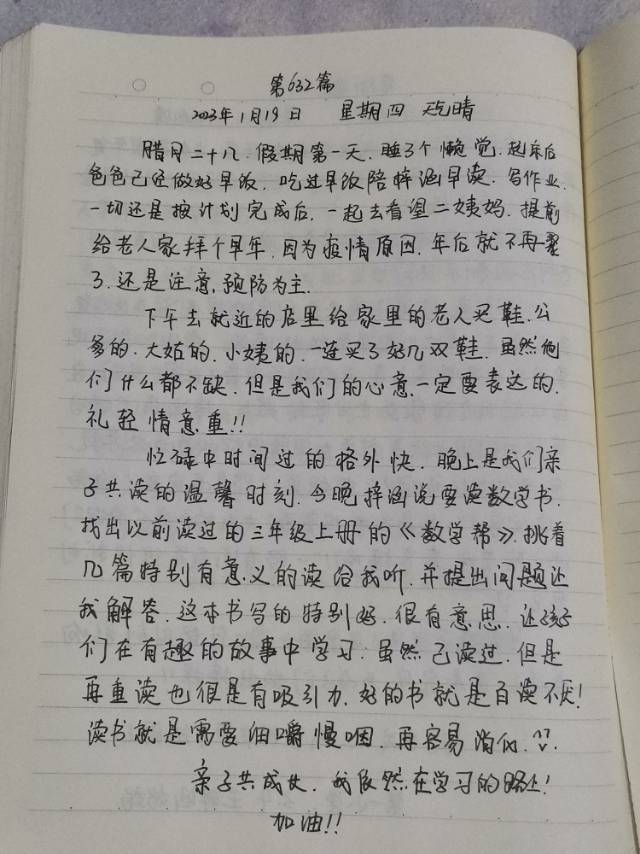 第632篇
2023年1月19日 星期四 天气晴
腊月二十八.假期第一天.睡了个懒觉.起床后
爸爸已经做好早饭.吃过早饭陪梓涵早读.写作业.
一切还是按计划完成后.一起去看望二姨妈.提前
给老人家拜个早年.因为疫情原因.年后就不再一聚
了.还是注意.预防为主.
下午去就近的店里给家里的老人买鞋.公
爹的.大姑的.小姨的.一连买了好几双鞋.虽然他
们什么都不缺.但是我们的心意.一定要表达的.
礼轻情意重!!
忙碌中时间过的格外快.晚上是我们亲
子共读的温馨时刻.今晚梓涵说要读数学书.
找出以前读过的三年级上册的《数学帮》.挑着
几篇特别有意义的读给我听.并提出问题让
我解答.这本书写的特别好.很有意思.让孩子
们在有趣的故事中学习.虽然已读过.但是
再重读也很是有吸引力.好的书就是百读不厌!
读书就是需要细嚼慢咽.再容易消化.
亲子共成长.我依然在学习的路上!
加油!!